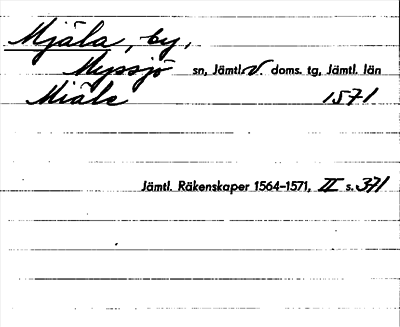 Mjäla, by,
Myssjö sn, Jämtl. v. doms. tg, Jämtl. län
Miäle 1571
Jämtl. Räkenskaper 1564–1571, II s. 371